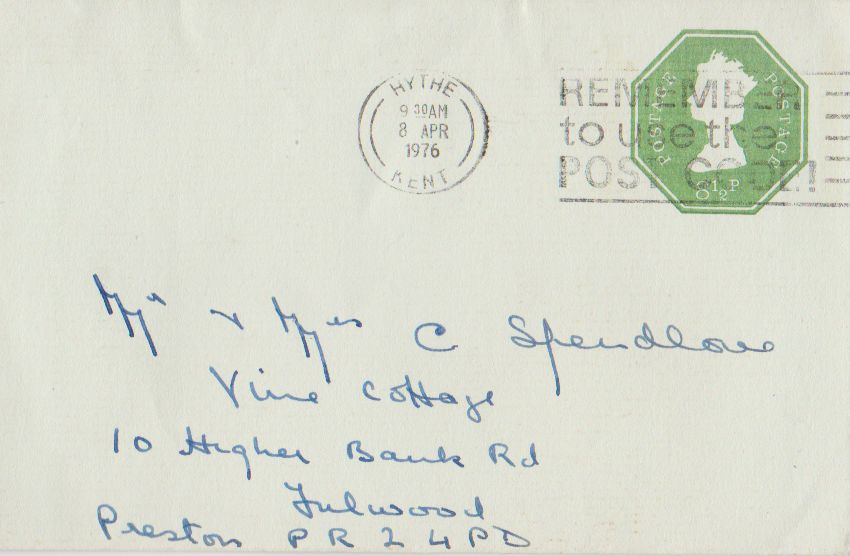 HYTHE
9 30AM
8 APR
1976
KENT
REMEMBER
to use the
POST CODE!
POSTAGE POSTAGE
8½P
Mr & Mrs C Spendlove
Vine Cottage
10 Higher Bank Rd
Fulwood
Preston PR2 4PD